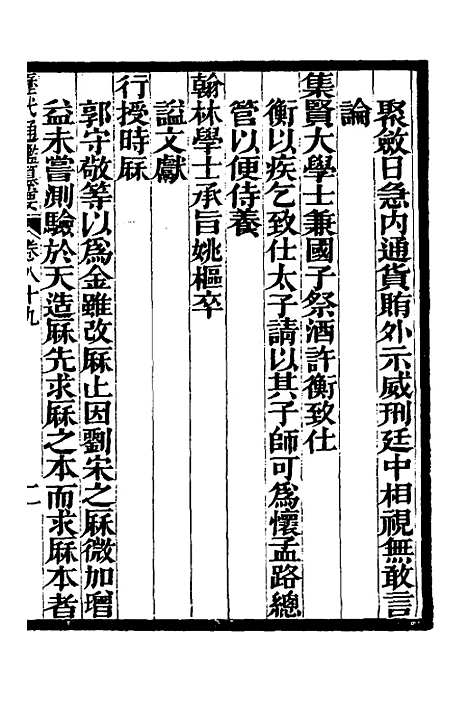 聚斂日急內通貨賄外示威刑廷中相視無敢言
論
集賢大學士兼國子祭酒許衡致仕
衡以疾乞致仕太子請以其子師可為懷孟路總
管以便侍養
翰林學士承旨姚樞卒
諡文獻
行授時厤
郭守敬等以為金雖改厤止因劉宋之厤微加增
益未嘗測驗於天造厤先求厤之本而求厤本者
歷代通鑑纂要 卷八十九 二